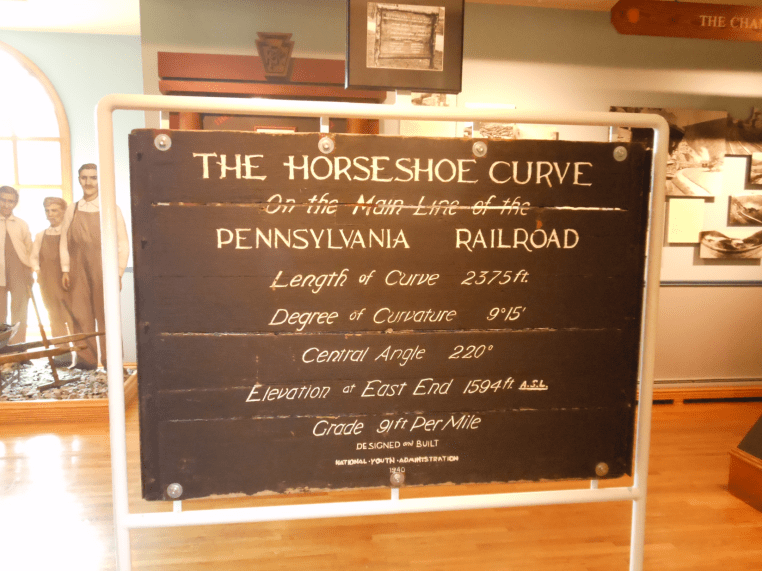 THE CHA
THE HORSESHOE CURVE
On the Main Line of the
PENNSYLVANIA RAILROAD
Length of Curve 2375 ft.
Degree of Curvature 9°15'
Central Angle 220°
Elevation at East End 1594 ft A.S.L.
Grade 91 ft Per Mile
DESIGNED and BUILT
NATIONAL·YOUTH·ADMINISTRATION
1940